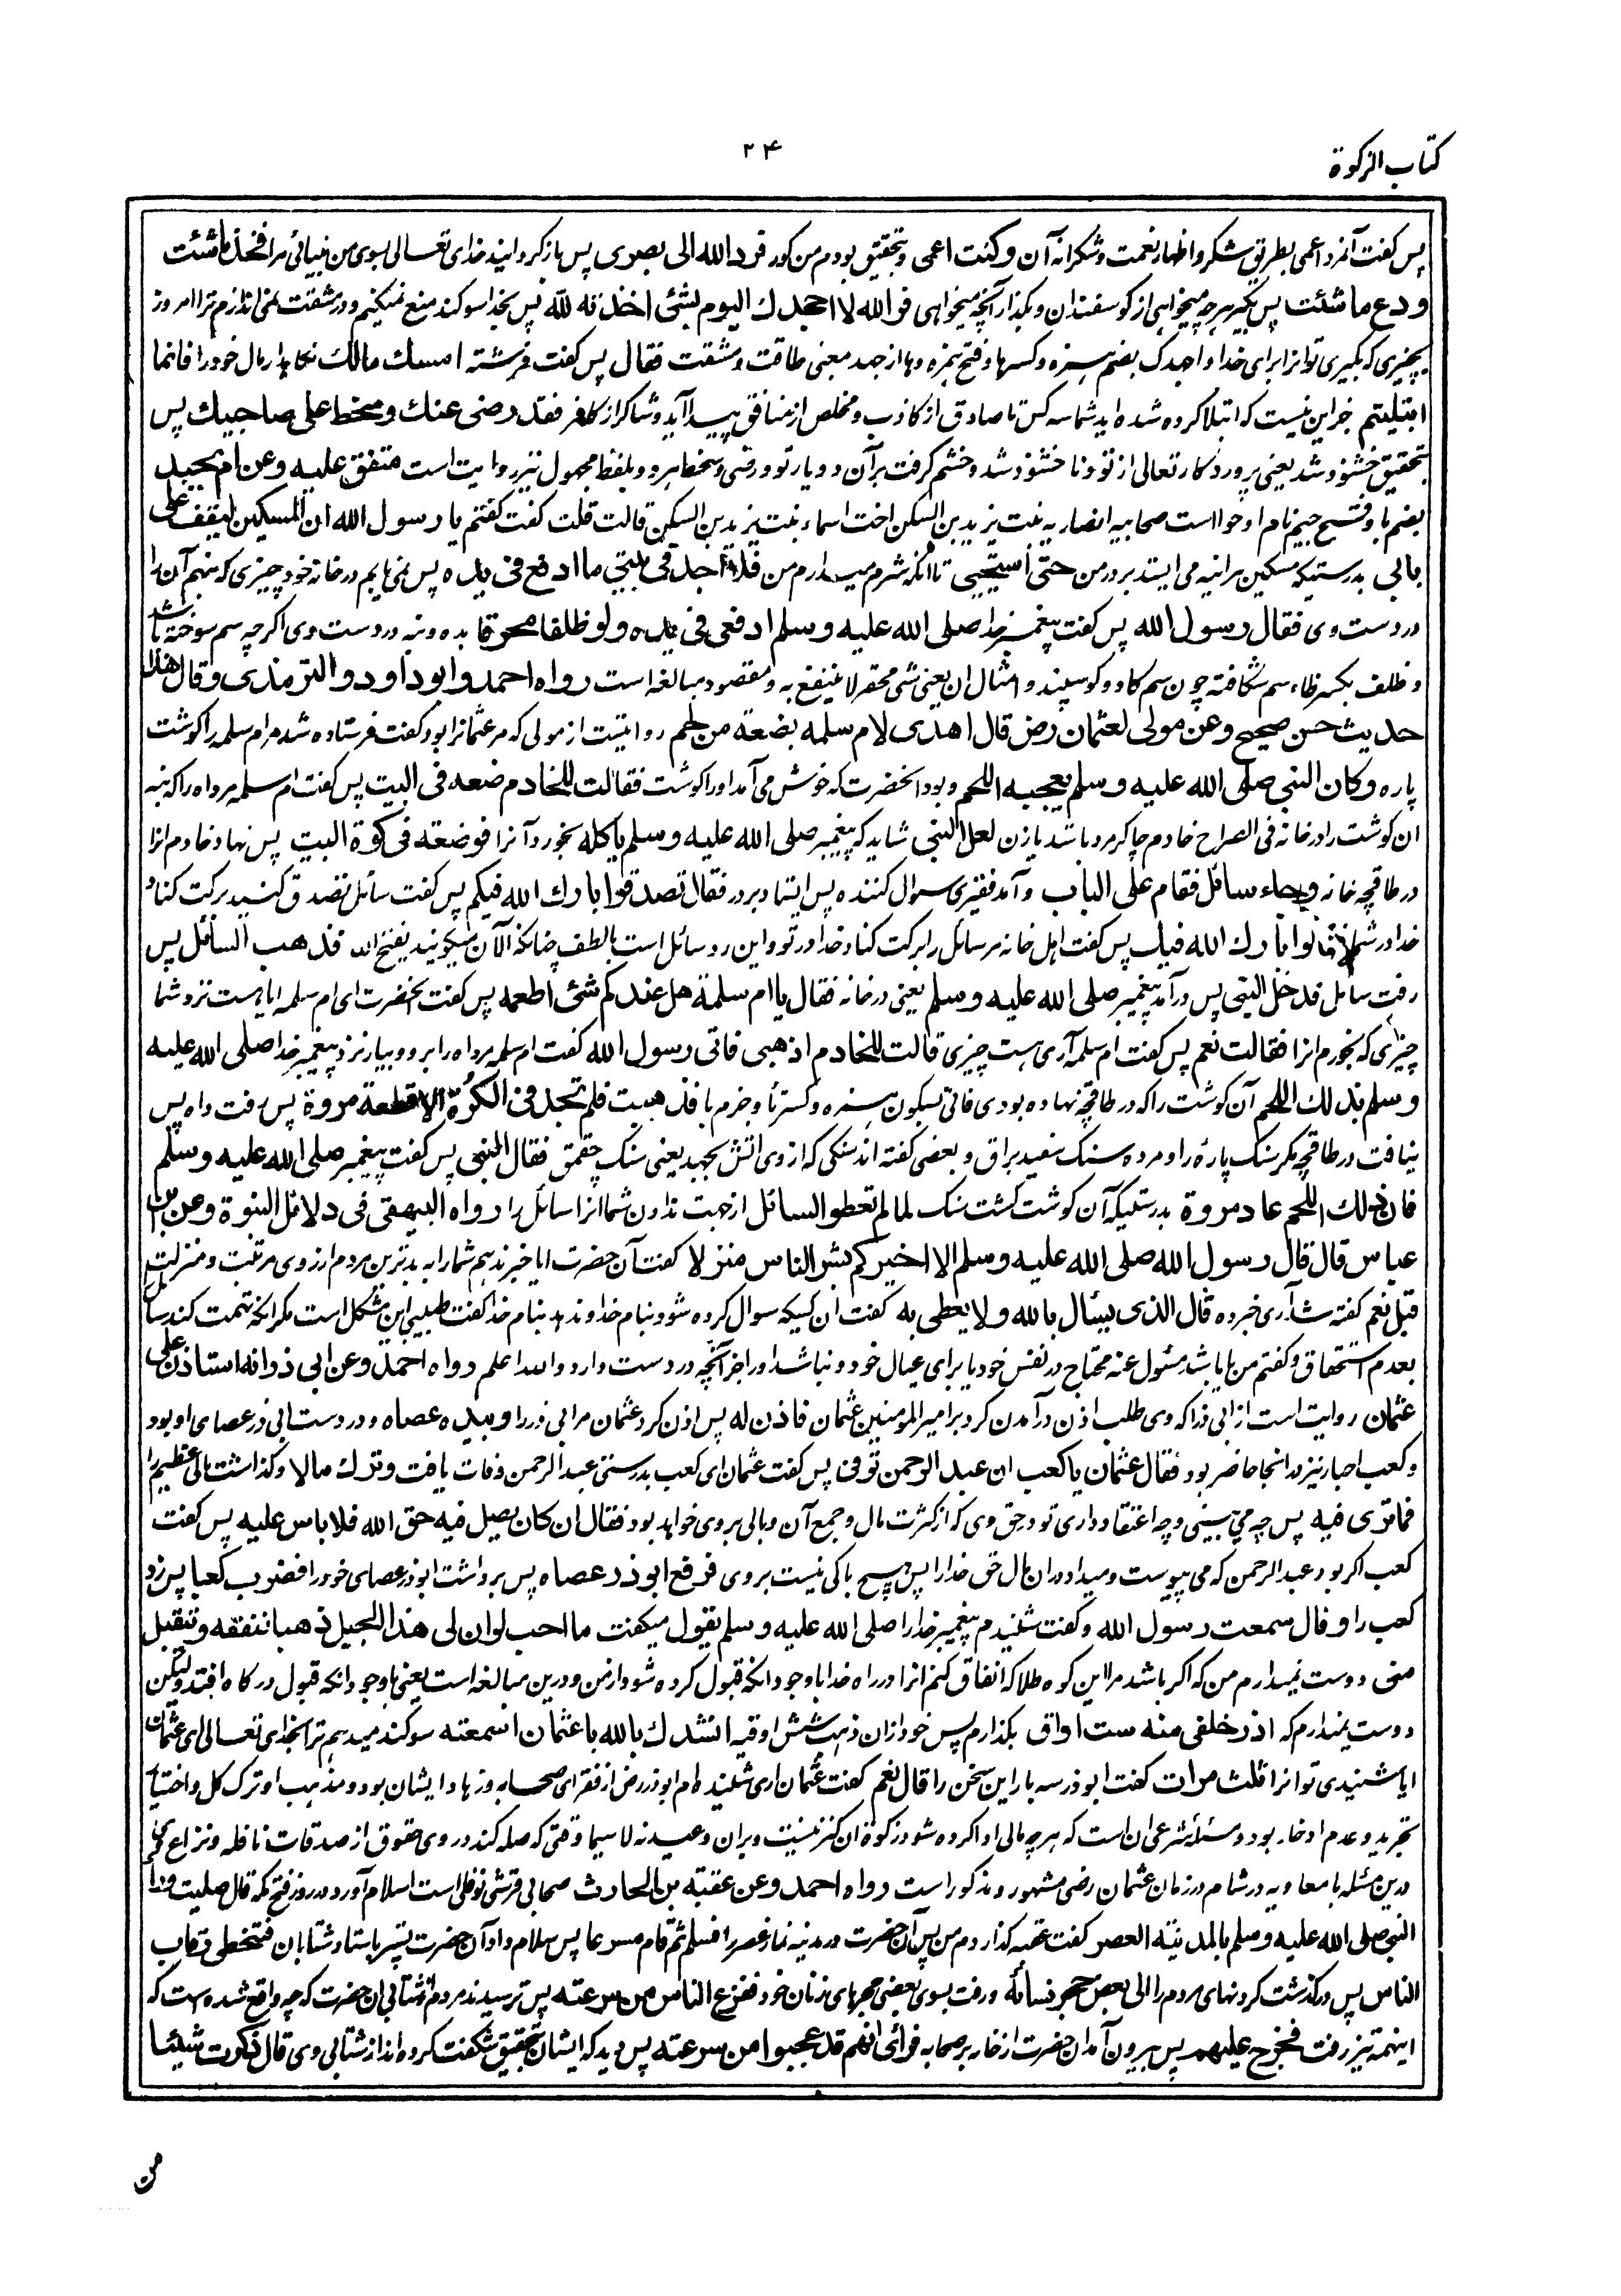 کتاب الزکوة
۲۴
پس گفت آنمرد اعمی بطریق شکر و اظهار نعمت و شکرانه آن وکنت اعمی و بتحقیق بودم من کور فرد الله الی بصری پس باز گردانید خدای تعالی بسوی من بینائی مرا فخذ ما شئت
ودع ما شئت پس بگیر هرچه میخواهی از گوسفندان و بگذار آنچه میخواهی فو الله لا اجهدك الیوم بشئ اخذته لله پس بخدا سوگند منع نمیکنم و در مشقت نمی اندازم ترا امروز
بچیزی که بگیری تو انرا برای خدا و اجهدک بضم همزه و کسر ها و فتح همزه و ها از جهد معنی طاقت و مشقت فقال پس گفت فرشته امسك مالك نگاهدار مال خود را فانما
ابتلیتم جز این نیست که ابتلا کرده شده اید شما سه کس تا صادق از کاذب و مخلص از منافق پیدا آید و شاکر از کافر فقد رضی عنك وسخط علی صاحبیك پس
بتحقیق خشنود شد یعنی پروردگار تعالی از تو و ناخشنود شد و خشم گرفت بر آن دو یار تو و رضی و سخط هر دو بلفظ مجهول نیز روایت است متفق علیه وعن ام بجید
بضم با و فتح جیم نام او حوا است صحابیه انصاریه بنت یزید بن السکن اخت اسماء بنت یزید بن السکن قالت قلت گفت گفتم یا رسول الله ان المسکین لیقف علی
بابی بدرستیکه مسکین هرآئینه می ایستد بر در من حتی استحیی تا آنکه شرم میدارم من فلا اجد فی بیتی ما ادفع فی یده پس نمی یابم در خانه خود چیزی که بنهم آن را
در دست وی فقال رسول الله پس گفت پیغمبر خدا صلی الله علیه وسلم ادفعی فی یده ولو ظلفا محرقا بده و بنه در دست وی اگرچه سم سوخته باشد
و ظلف بکسر ظاء سم شگافته چون سم گاو و گوسپند و امثال ان یعنی شئ محقر لا ینتفع به و مقصود مبالغه است رواه احمد وابو داود والترمذی وقال هذا
حدیث حسن صحیح وعن مولی لعثمان رض قال اهدی لام سلمه بضعة من لحم روایتست از مولی که مر عثمانرا بود گفت فرستاده شد مر ام سلمه را گوشت
پاره وکان النبی صلی الله علیه وسلم یعجبه اللحم و بود انحضرت که خوش می آمد او را گوشت فقالت للخادم ضعه فی البیت پس گفت ام سلمه مر داه را که بنه
ان گوشت را در خانه فی الصراح خادم چاکر مرد باشد یا زن لعل النبی شاید که پیغمبر صلی الله علیه وسلم یاکله بخورد آنرا فوضعته فی کوة البیت پس نهاد خادم انرا
در طاقچه خانه وجاء سائل فقام علی الباب و آمد فقیری سوال کننده پس ایستاد بر در فقال تصدقوا بارك الله فیکم پس گفت سائل تصدق کنید برکت کناد
خدا در شما فقالوا بارك الله فیك پس گفت اهل خانه مر سائل را برکت کناد خدا در تو و این رد سائل است بالطف چنانکه الآن میگویند یفتح الله فذهب السائل پس
رفت سائل فدخل النبی پس درآمد پیغمبر صلی الله علیه وسلم یعنی در خانه فقال یا ام سلمة هل عندکم شئ اطعمه پس گفت انحضرت ای ام سلمه ایا هست نزد شما
چیزی که بخورم انرا فقالت نعم پس گفت ام سلمه آری هست چیزی قالت للخادم اذهبی فاتی رسول الله گفت ام سلمه مر داه را برو و بیار نزد پیغمبر خدا صلی الله علیه
وسلم بذلك اللحم آن گوشت را که در طاقچه نهاده بودی فاتی بسکون همزه و کسر تا و جزم یا فذهبت فلم تجد فی الکوة الا قطعة مروة پس رفت داه پس
نیافت در طاقچه مگر سنگ پاره را و مروه سنگ سفید براق و بعضی گفته اند سنگی که از وی اتش بجهد یعنی سنگ چقمق فقال النبی پس گفت پیغمبر صلی الله علیه وسلم
فان ذلك اللحم عاد مروة بدرستیکه آن گوشت گشت سنگ لما لم تعطوا السائل از جهت ندادن شما انرا سائل را رواه البیهقی فی دلائل النبوة وعن ابن
عباس قال قال رسول الله صلی الله علیه وسلم الا اخبرکم بشر الناس منزلا گفت آن حضرت ایا خبر ندهم شما را به بدترین مردم از روی مرتبت و منزلت
قیل نعم گفته شد آری خبر ده قال الذی یسأل بالله ولا یعطی به گفت ان کسیکه سوال کرده شود بنام خدا و ندهد بنام خدا گفت طیبی این مشکل است مگر انکه تهمت کند سائل را
بعدم استحقاق و گفتم من یا باشد مسئول عنه محتاج در نفس خود یا برای عیال خود و نباشد او را جز آنچه در دست دارد والله اعلم رواه احمد وعن ابی ذر انه استاذن علی
عثمان روایت است از ابی ذر که وی طلب اذن درآمدن کرد بر امیر المومنین عثمان فاذن له پس اذن کرد عثمان مر ابی ذر را وبیده عصاه و در دست ابی ذر عصای او بود
و کعب احبار نیز در انجا حاضر بود فقال عثمان یا کعب ان عبد الرحمن توفی پس گفت عثمان ای کعب بدرستی عبد الرحمن وفات یافت وترك مالا و گذاشت مالی عظیم را
فما تری فیه پس چه می بینی و چه اعتقاد داری تو در حق وی که از کثرت مال و جمع آن وبالی بر وی خواهد بود فقال ان کان یصل فیه حق الله فلا باس علیه پس گفت
کعب اگر بود عبد الرحمن که می پیوست و میداد در ان مال حق خدا را پس هیچ باکی نیست بر وی فرفع ابو ذر عصاه پس برداشت ابوذر عصای خود را فضرب کعبا پس زد
کعب را وقال سمعت رسول الله و گفت شنیدم پیغمبر خدا را صلی الله علیه وسلم یقول میگفت ما احب لو ان لی هذا الجبل ذهبا انفقه ویتقبل
منی دوست نمیدارم من که اگر باشد مرا این کوه طلا که انفاق کنم انرا در راه خدا با وجود انکه قبول کرده شود از من و درین مبالغه است یعنی با وجود انکه قبول درگاه افتد ولیکن
دوست نمیدارم که اذر خلفی منه ست اواق بگذارم پس خود ازان ذهب شش اوقیه انشدك بالله یا عثمان اسمعته سوگند میدهم ترا بخدای تعالی ای عثمان
ایا شنیدی تو انرا ثلث مرات گفت ابوذر سه بار این سخن را قال نعم گفت عثمان اری شنیده ام ابوذر رض از فقرای صحابه و زهاد ایشان بود و مذهب او ترک کل و اختیار
تجرید و عدم ادخار بود و مسئله شرعی ان است که هرچه مالی ادا کرده شود زکوة ان کنز نیست و بران وعید نه لا سیما وقتی که صله کند در وی حقوق از صدقات نافله و نزاع وی
درین مسئله با معاویه در شام در زمان عثمان رضی مشهور و مذکور است رواه احمد وعن عقبة بن الحارث صحابی قرشی نوفلی است اسلام آورد در روز فتح مکه قال صلیت وراء
النبی صلی الله علیه وسلم بالمدینة العصر گفت عقبه گذاردم من پس آن حضرت در مدینه نماز عصر را فسلم ثم قام مسرعا پس سلام داد آن حضرت پستر بایستاد شتابان فتخطی رقاب
الناس پس درگذشت گردنهای مردم را الی بعض حجر نسائه و رفت بسوی بعضی حجرهای زنان خود ففزع الناس من سرعته پس ترسیدند مردم از شتابی ان حضرت که چه واقع شده است که
اینهمه تیز رفت فخرج علیهم پس بیرون آمد ان حضرت از خانه بر صحابه فرأی انهم قد عجبوا من سرعته پس دید که ایشان بتحقیق شگفت کرده اند از شتابی وی قال ذکرت شیئا
من